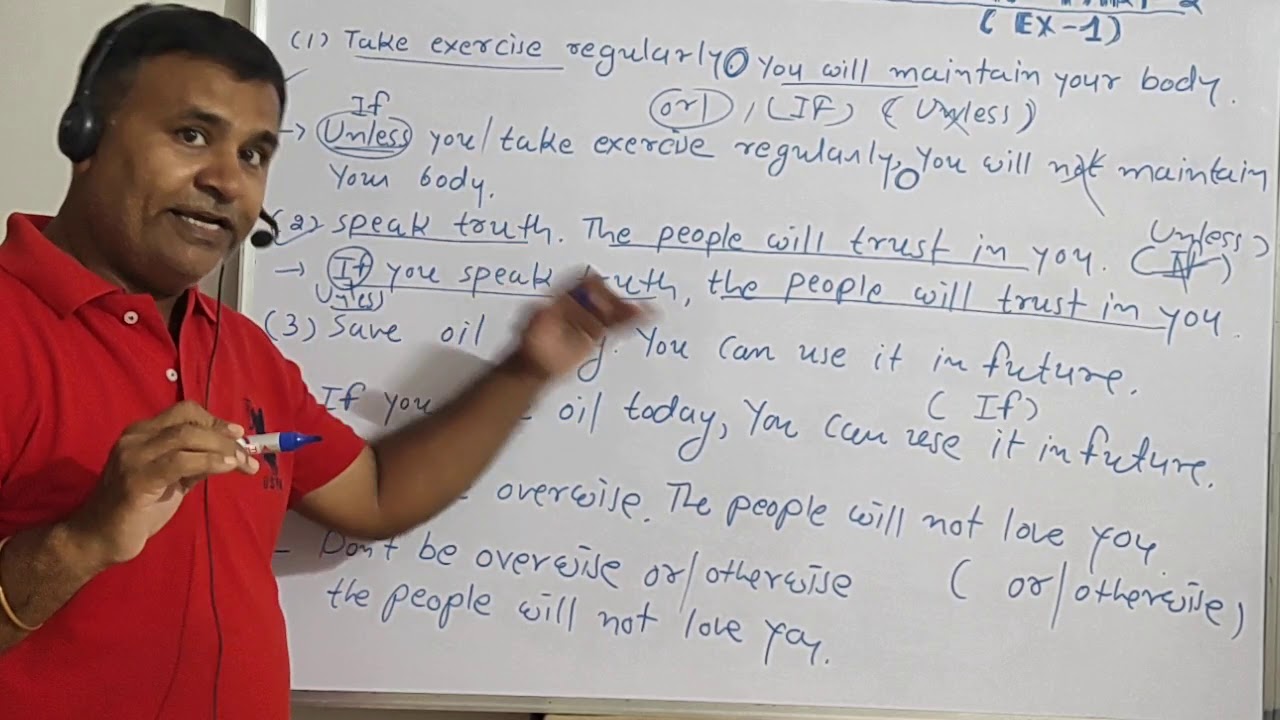 (EX-1)
(1) Take exercise regularly. You will maintain your body.
(or), (If) (Unless)
If
→ Unless you/take exercise regularly, You will not maintain
Your body.
(2) speak truth. The people will trust in you.
Unless)
(If)
→ If you speak truth, the people will trust in you.
Unless
(3) Save oil You can use it in future.
(If)
If you oil today, You can use it in future.
overwise. The people will not love you.
- Don't be overwise or/otherwise
(or/otherwise)
the people will not love you.